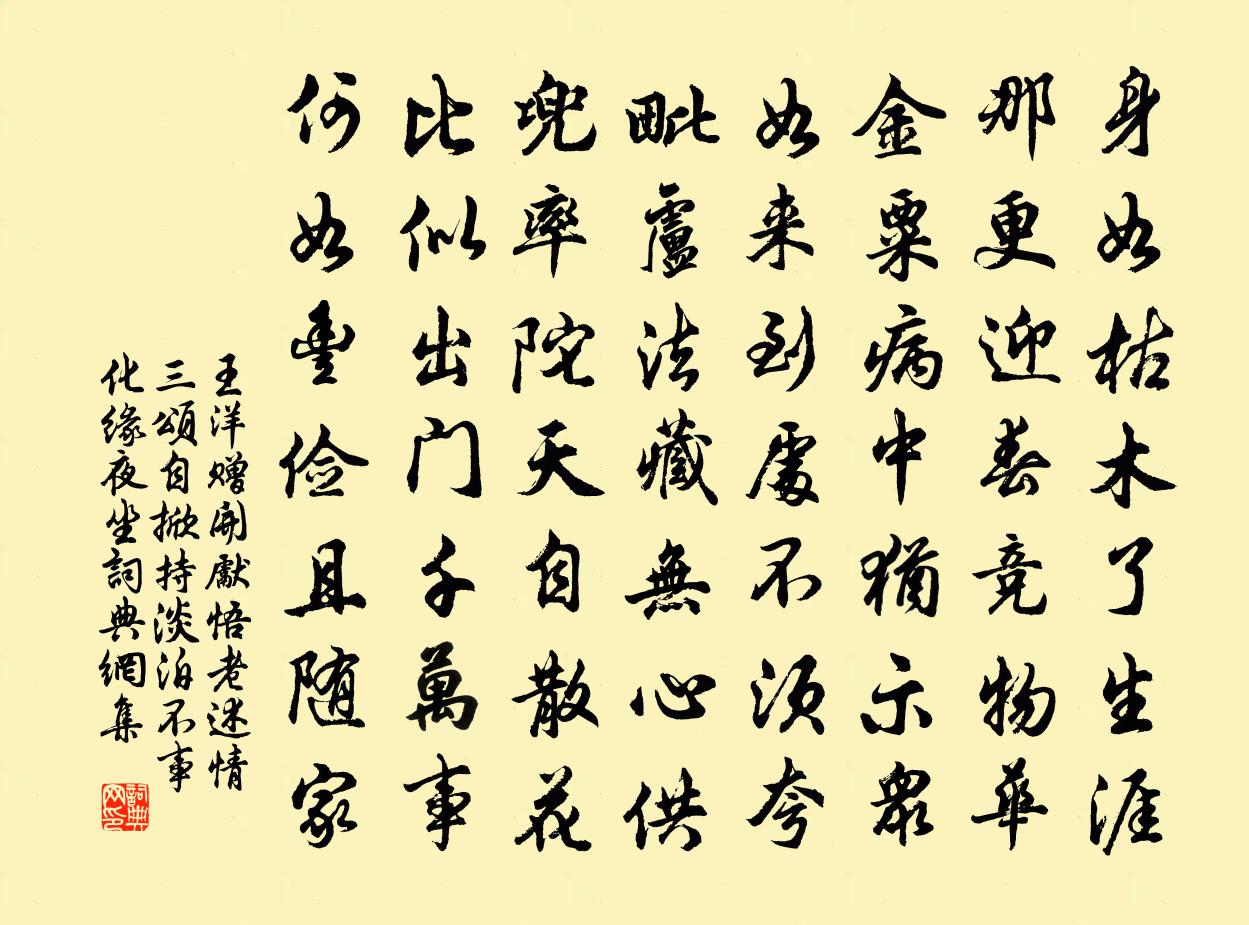 身如枯木了生涯
那更迎春竞物華
金粟病中猶示衆
如来到處不須夸
毗盧法藏無心供
兜率陀天自散花
比似出門千萬事
何如豊儉且随家
王洋赠開獻悟老述情
三頌自掀持淡泊不事
化缘夜坐詞典網集
詞典網印